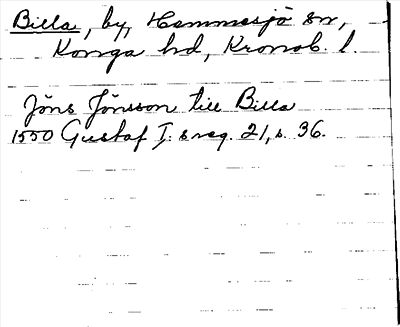 Billa, by, Hemmesjö sn,
Konga hd, Kronob. l.
Jöns Jönsson till Billa
1550 Gustaf I:s reg. 21, s. 36.